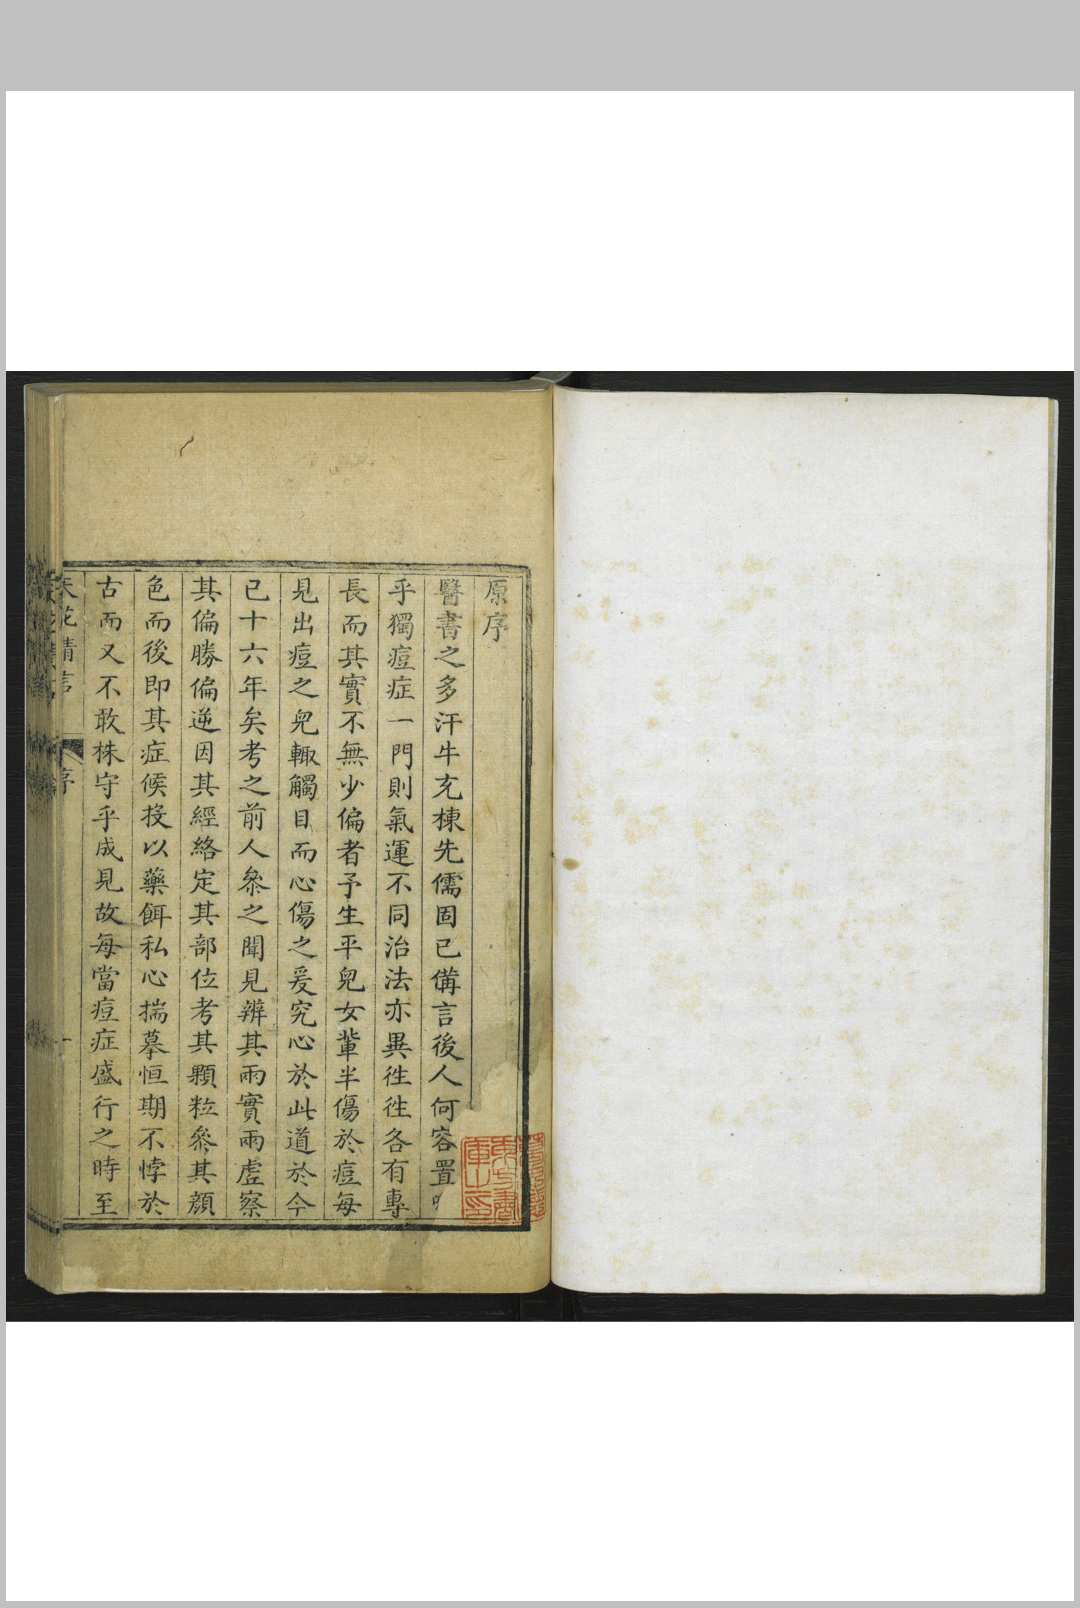 原序
醫書之多汗牛充棟先儒固已備言後人何容置
乎獨痘症一門則氣運不同治法亦異徃徃各有專
長而其實不無少偏者予生平兒女輩半傷於痘每
見出痘之兒輙觸目而心傷之爰究心於此道於今
已十六年矣考之前人叅之聞見辨其兩實兩虛察
其偏勝偏逆因其經絡定其部位考其顆粒叅其顔
色而後即其症候投以藥餌私心揣摹恒期不悖於
古而又不敢株守乎成見故每當痘症盛行之時至
天花精言 序 一